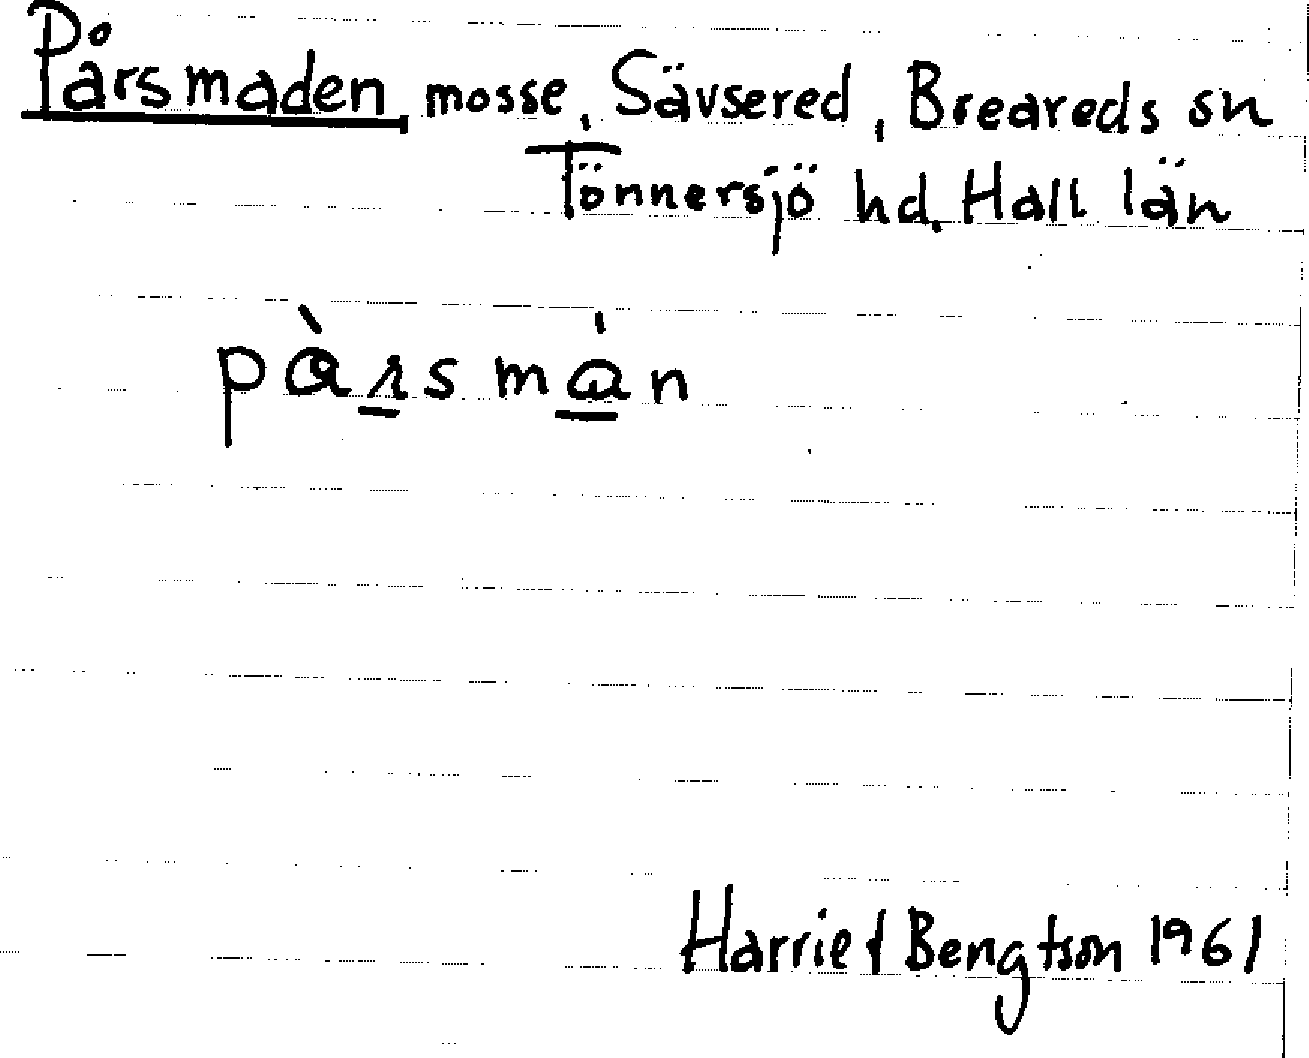 Pårsmaden mosse, Sävsered, Breareds sn
Tönnersjö hd. Hall län
pàrsmán
Harriet Bengtson 1961